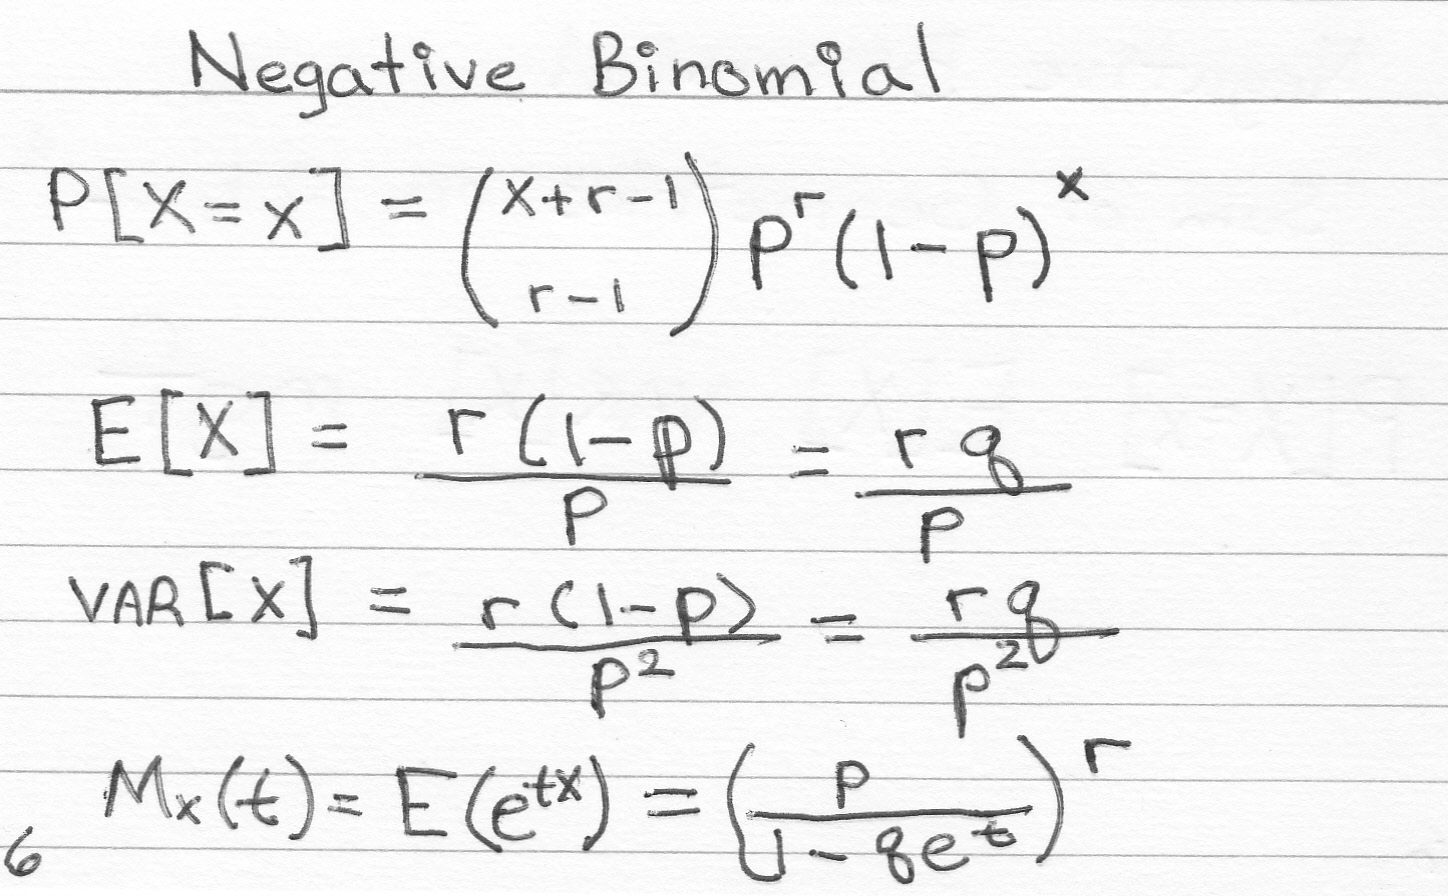 Negative Binomial
P[X=x] = \binom{x+r-1}{r-1} p^r (1-p)^x
E[X] = \frac{r(1-p)}{p} = \frac{rq}{p}
VAR[X] = \frac{r(1-p)}{p^2} = \frac{rq}{p^2}
M_x(t) = E(e^{tx}) = \left(\frac{p}{1-qe^t}\right)^r
6